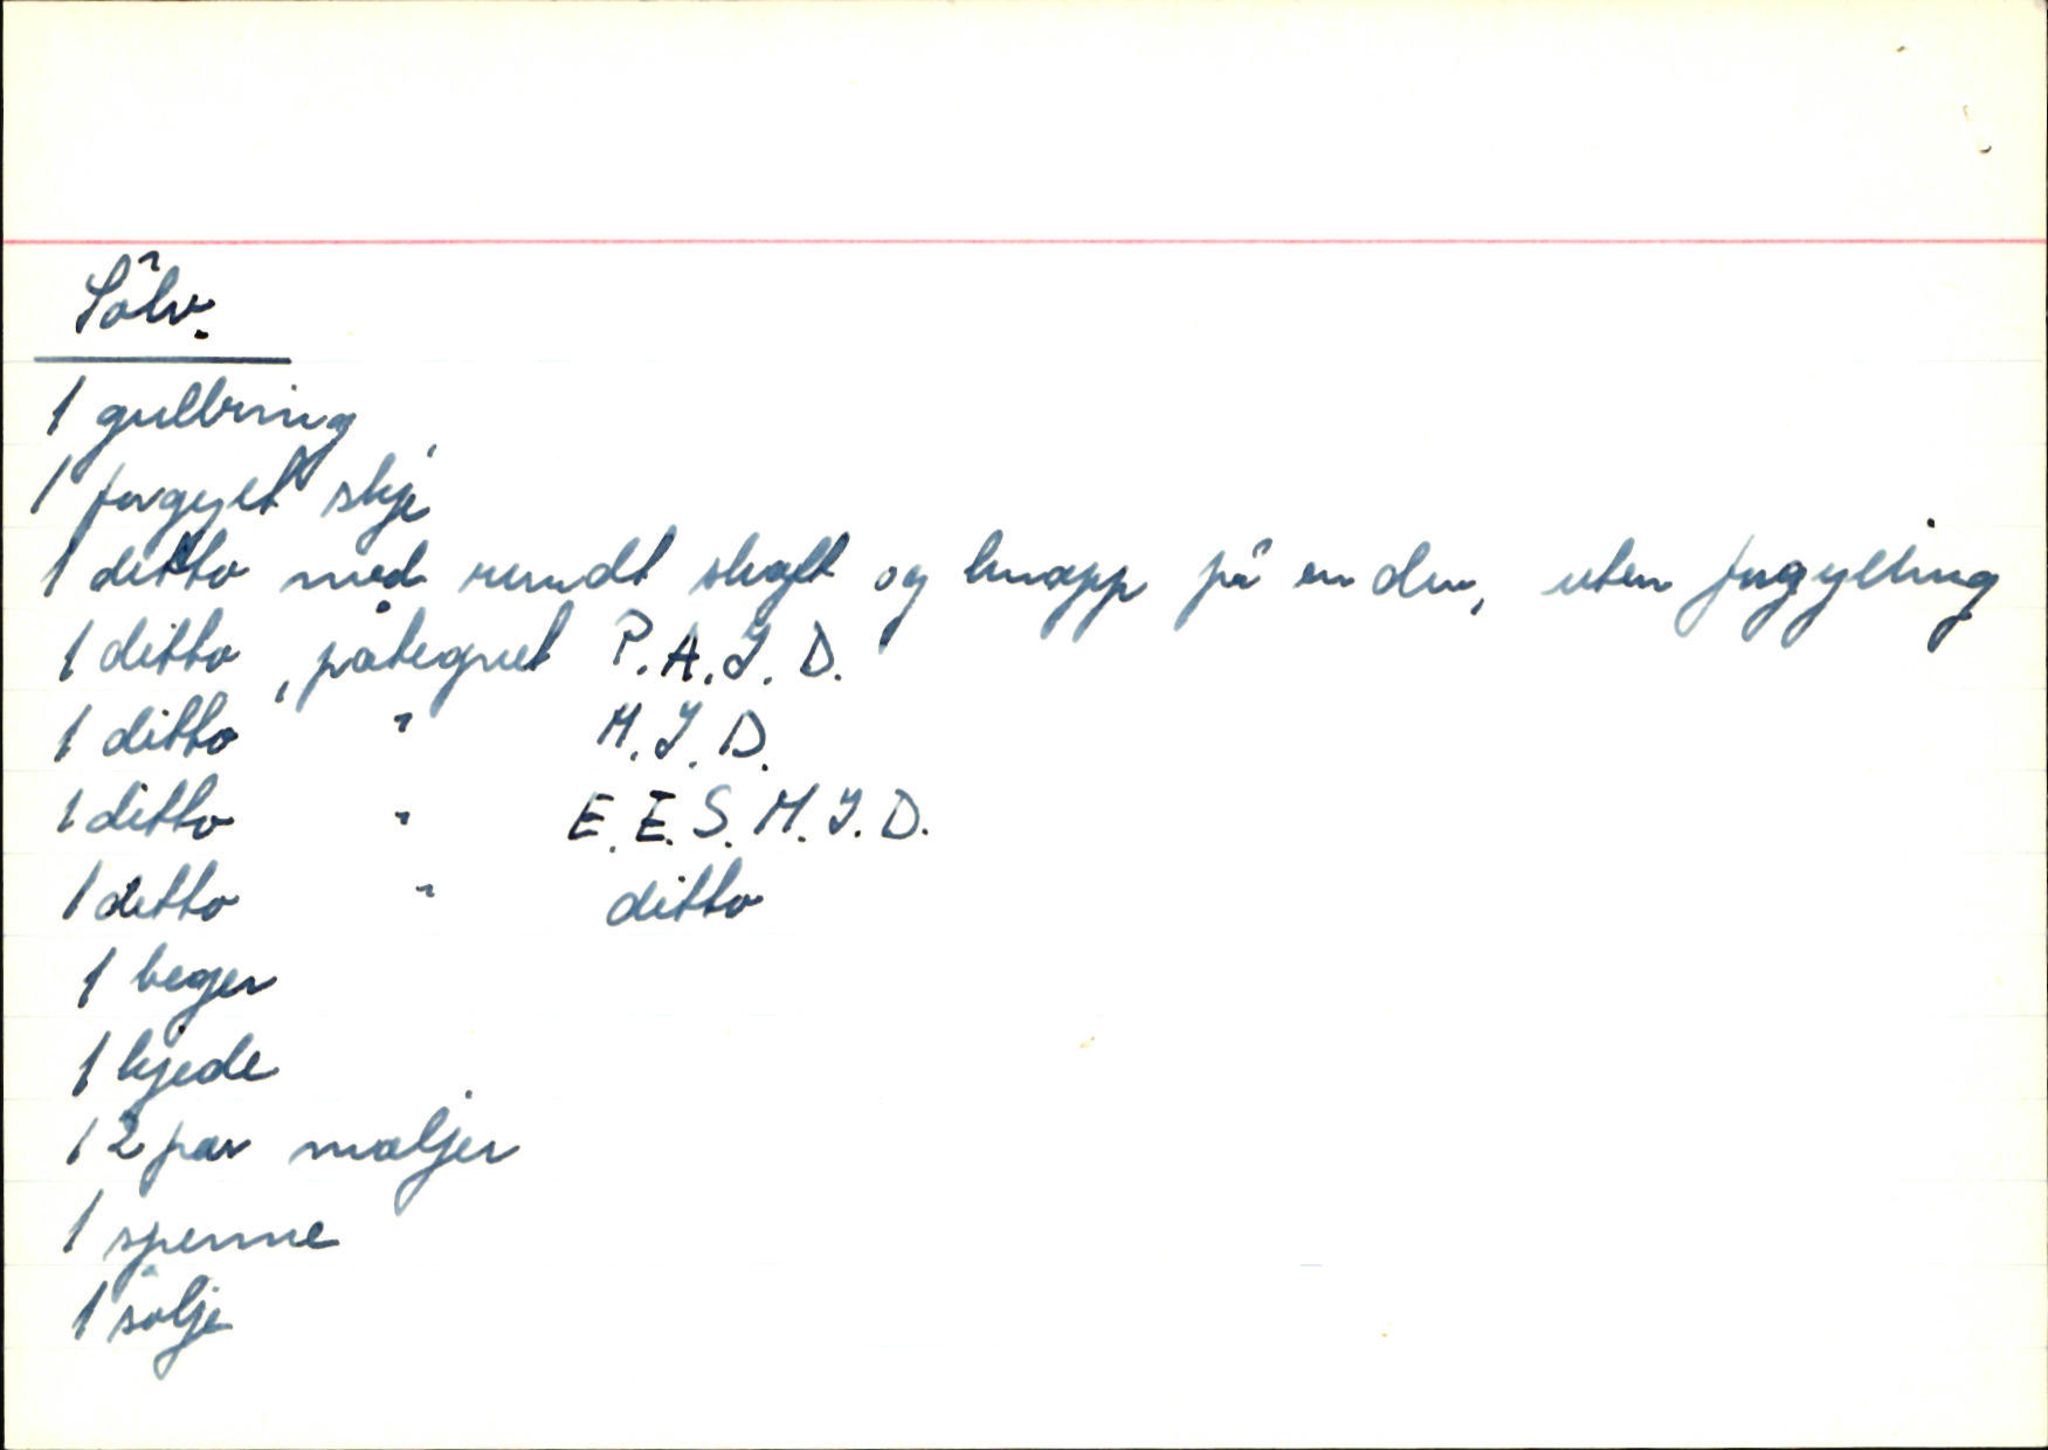 Sölv.
1 gullring
1 forgylt skje
1 ditto med rundt skaft og knapp på enden, uten forgylling
1 ditto, påtegnet P.A.I.D.
1 ditto " M.I.D.
1 ditto " E.E.S.M.I.D.
1 ditto " ditto
1 beger
1 kjede
12 par maljer
1 spenne
1 sölje